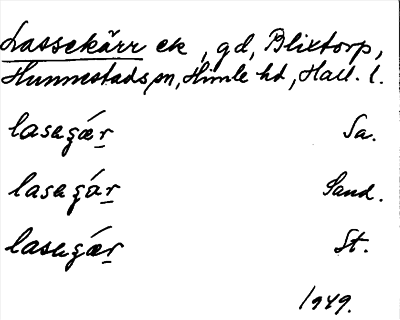 Lassekärr ek, gd, Blixtorp,
Hunnestads sn, Himle hd, Hall. l.
lasegæ̀r Sa.
lasegár Sand.
lasegæ̀r St.
1949.